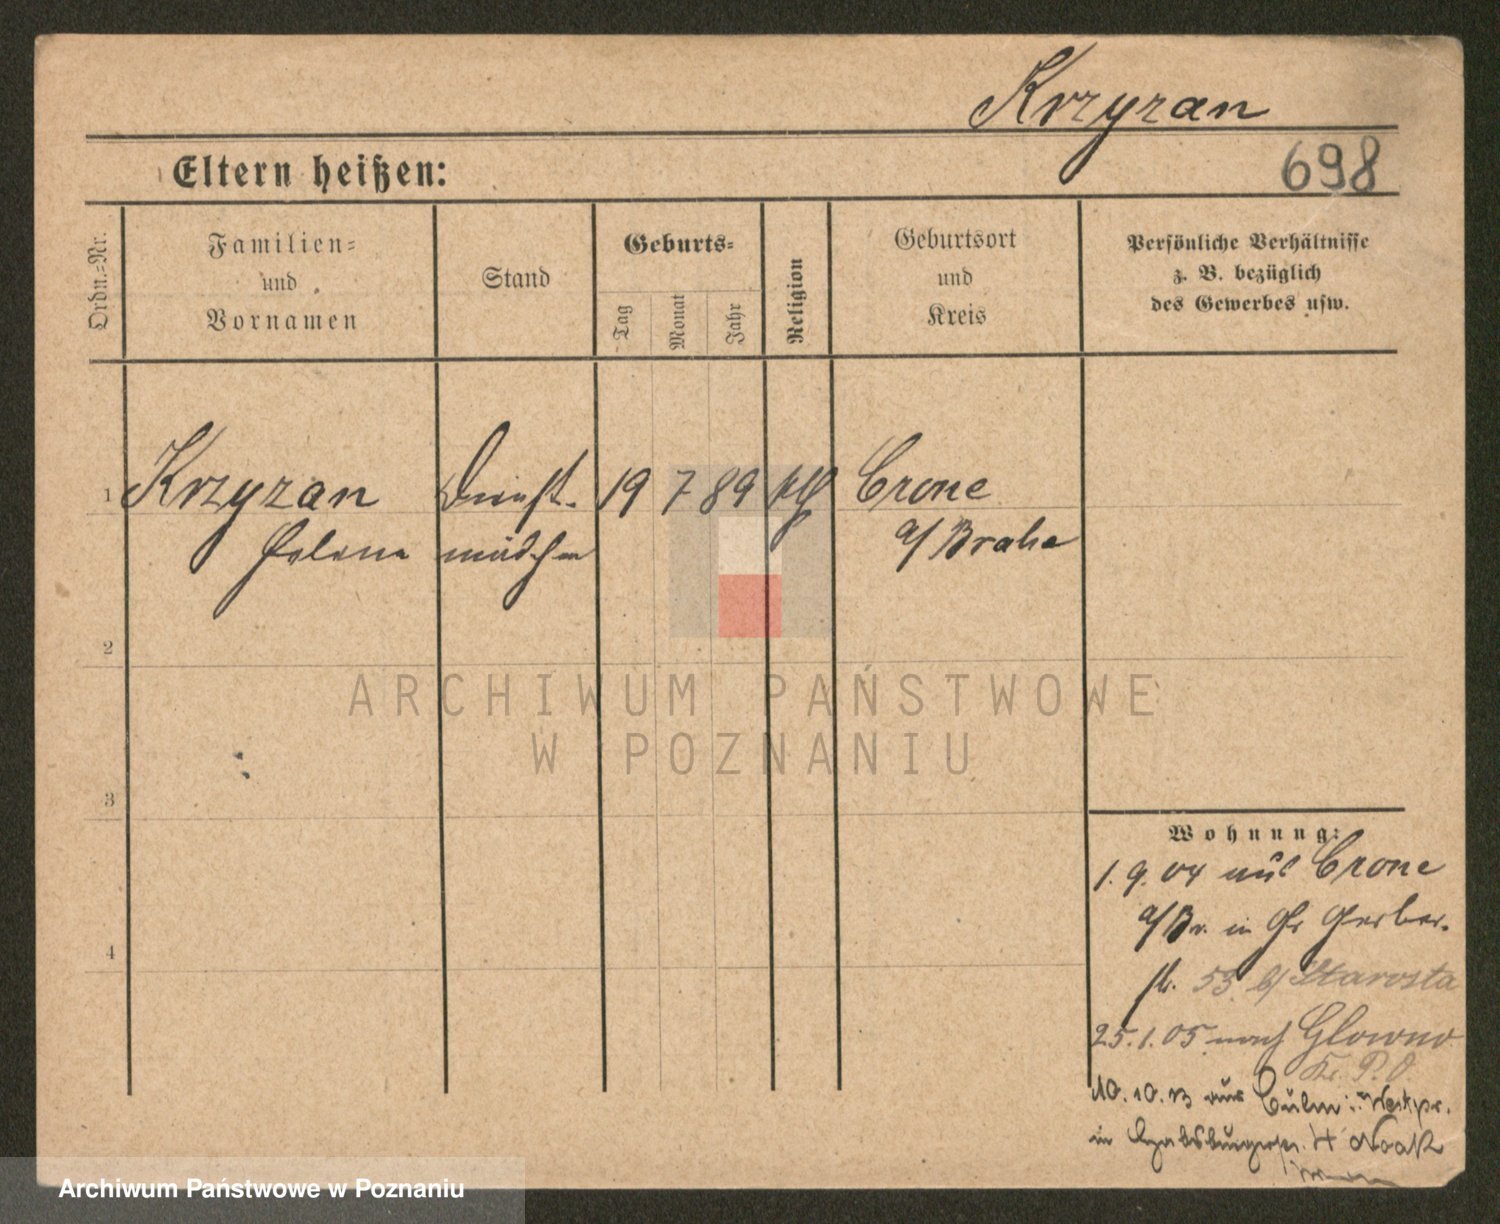 Krzyzan
Eltern heißen:
698
Ordn.-Nr.
Familien-
und
Vornamen
Stand
Geburts-
Tag
Monat
Jahr
Religion
Geburtsort
und
Kreis
Persönliche Verhältnisse
z. B. bezüglich
des Gewerbes usw.
1 Krzyzan Dienst- 19 7 89 kth Crone
Helene mädchen a/Brahe
2
ARCHIWUM PAŃSTWOWE
W POZNANIU
3
Wohnung:
1.9.04 aus Crone
a/Br. in Gr Gerber-
4
str. 53 b/ Starosta
25.1.05 nach Glowno
Kr. P. O.
10.10.13 aus Culm i. Westpr.
in Habsburgerstr. 4 Noak
Archiwum Państwowe w Poznaniu